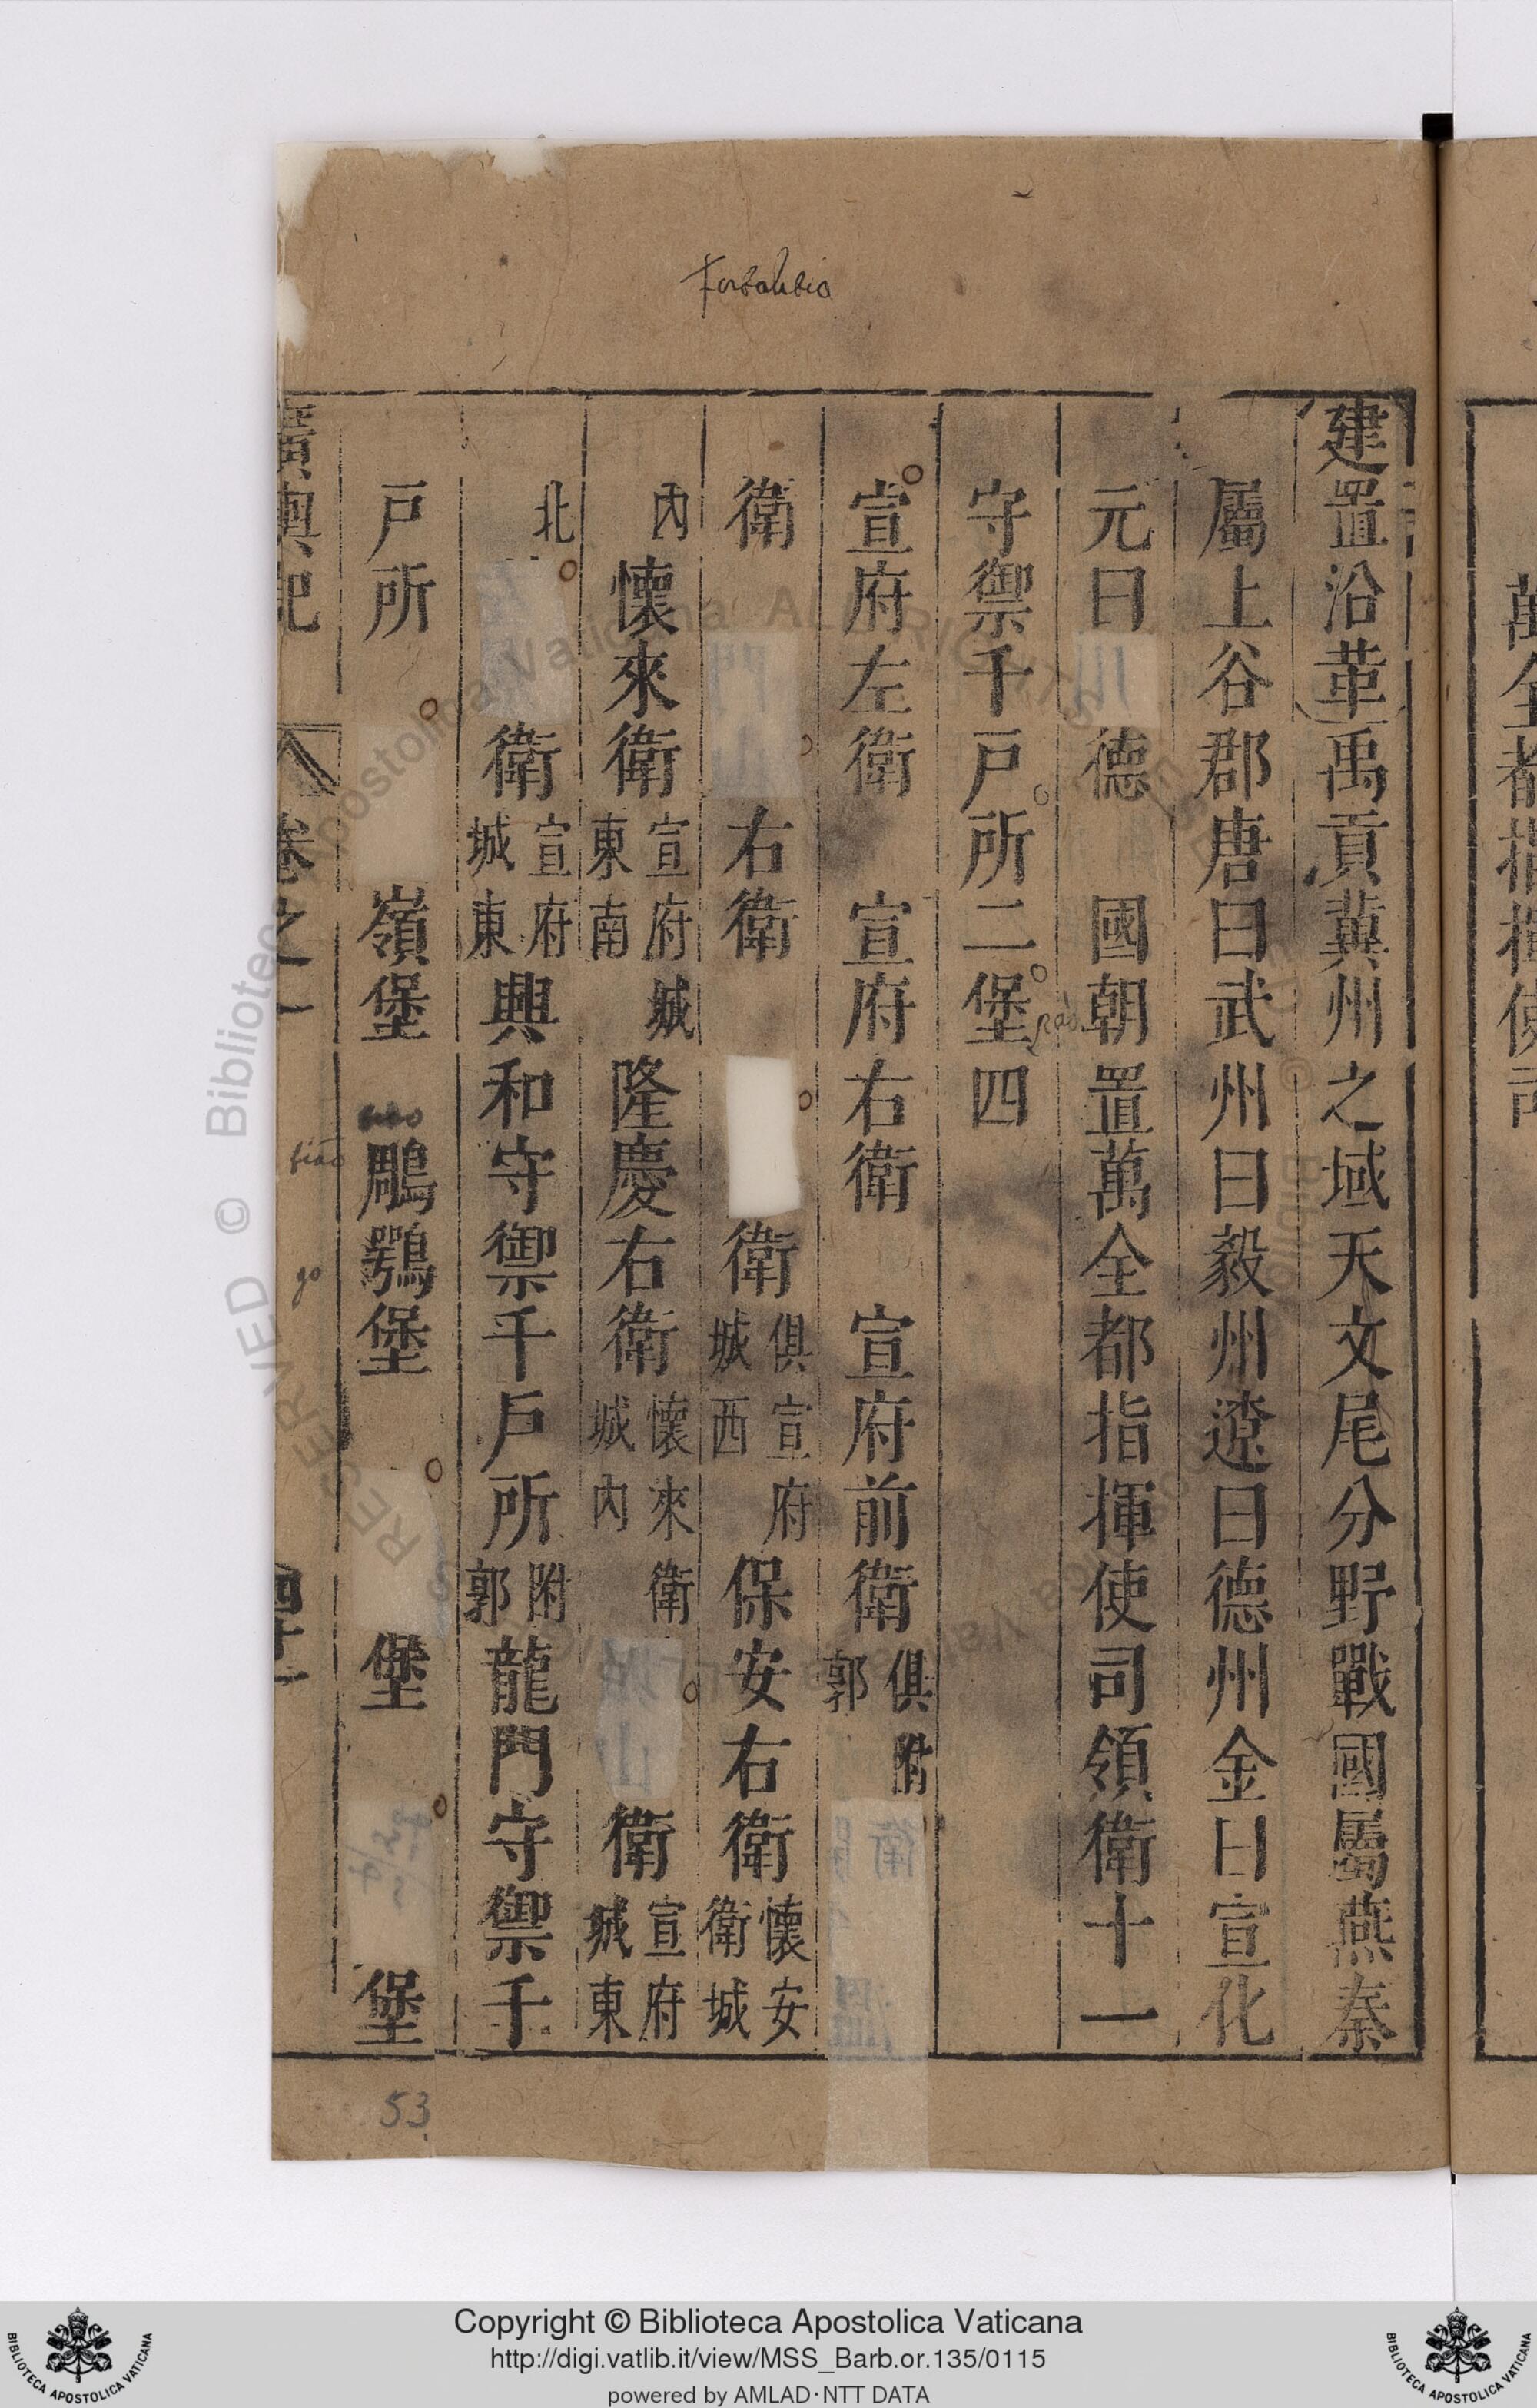 Fortalitia
建置沿革禹貢冀州之域天文尾分野戰國屬燕秦
屬上谷郡唐曰武州曰毅州遼曰德州金曰宣化
元曰 德 國朝置萬全都指揮使司領衛十一
守禦千戶所二堡四
pào
宣府左衛 宣府右衛 宣府前衛俱附郭
衛 右衛 衛俱宣府城西保安右衛懷安衛城
內懷來衛宣府城東南隆慶右衛懷來衛城內 衛宣府城東
北 衛宣府城東興和守禦千戶所附郭龍門守禦千
戶所 嶺堡 鵰鶚堡 堡 堡
tiāo
go
廣輿記 卷之一 四十一
53
萬全都指揮使司
Copyright © Biblioteca Apostolica Vaticana
http://digi.vatlib.it/view/MSS_Barb.or.135/0115
powered by AMLAD·NTT DATA
BIBLIOTECA APOSTOLICA VATICANA
BIBLIOTECA APOSTOLICA VATICANA